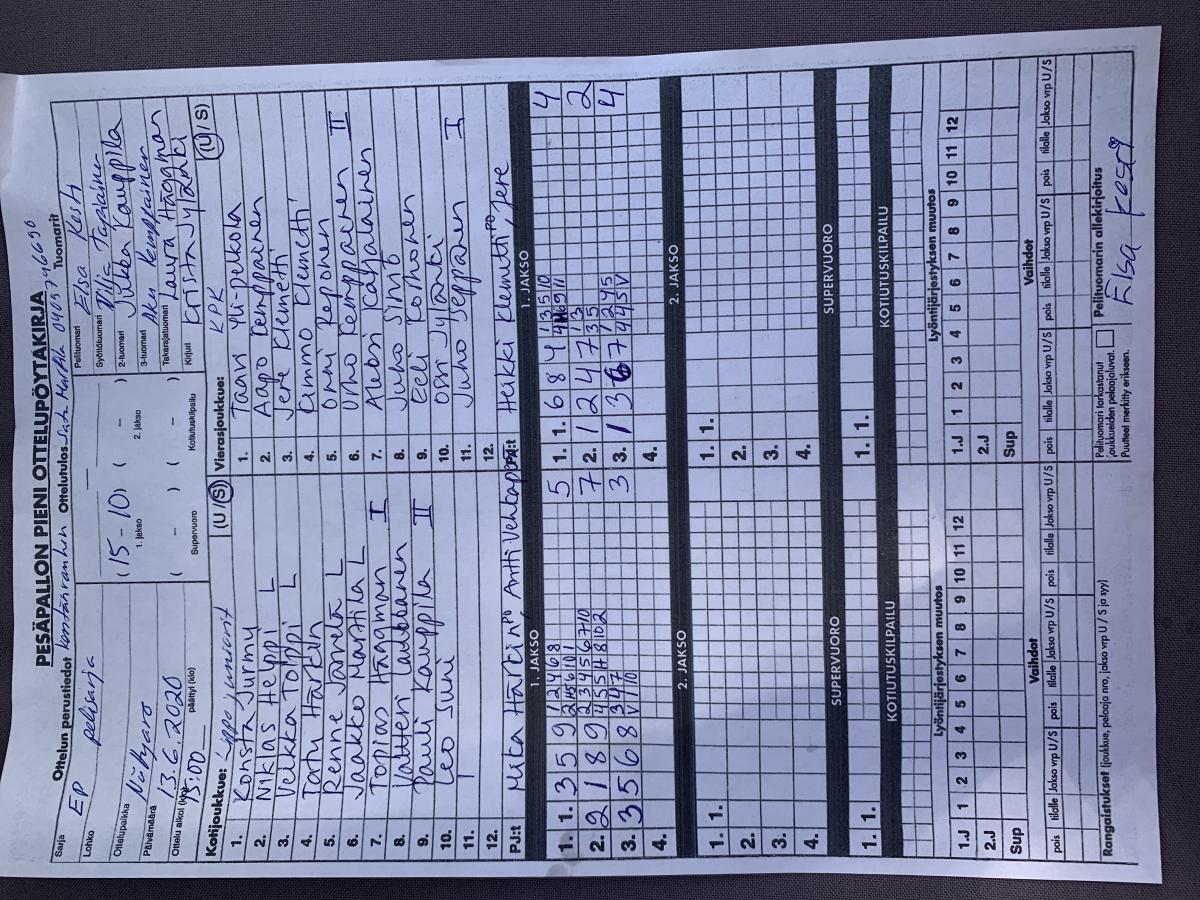 PESÄPALLON PIENI OTTELUPÖYTÄKIRJA
Ottelun perustiedot
Sarja EP
Lohko pelisarja
Ottelupaikka
Päivämäärä 13.6.2020
Ottelu alkoi (klo) 15:00 päättyi (klo)
Ottelutulos
( 15 - 10 ) ( - )
1. jakso 2. jakso
( - ) ( - )
Supervuoro Kotiutuskilpailu
Tuomarit
Pelituomari Elsa Koski
Syöttötuomari
2-tuomari Jukka Kauppila
3-tuomari Aku Kemppainen
Takarajatuomari Laura Häggman
Kirjuri Krista Jylänki
Kotijoukkue: Lippo juniorit (U / S)
1. Konsta Jurmu
2. Niklas Helppi L
3. Veikka Tolppi L
4. Tatu Härkin
5. Renne L
6. Jaakko Marttila L
7. Topias Häggman I
8. Valtteri
9. Pauli Kauppila II
10. Leo Suni
11.
12.
PJ:t Miia Härkin PJ, Antti
Vierasjoukkue: KPK (U / S)
1. Taavi Yli-pekola
2. Aapo Kemppainen
3. Jere Klemetti
4. Kimmo Klemetti
5. Onni Keponen
6. Urho Kemppainen II
7. Aleksi Karjalainen
8. Juho Simo
9. Eeli Korhonen
10. Ossi Jylänki
11. Juho Seppänen I
12.
PJ:t Heikki Klemetti PJ, Jere
1. JAKSO
1. 1. 3 5 9 1 2 4 6 8 5
2. 2 1 8 9 2 3 4 5 6 7 10 7
3. 3 5 6 8 3 4 7 3
4.
1. JAKSO
1. 1. 6 8 4 1 3 5 10 4
2. 1 2 4 7 1 3 2
3. 1 3 6 7 1 2 4 5 4
4.
2. JAKSO
1. 1.
2.
3.
4.
2. JAKSO
1. 1.
2.
3.
4.
SUPERVUORO
1. 1.
SUPERVUORO
1. 1.
KOTIUTUSKILPAILU
KOTIUTUSKILPAILU
Lyöntijärjestyksen muutos
1.J 1 2 3 4 5 6 7 8 9 10 11 12
2.J
Sup
Lyöntijärjestyksen muutos
1.J 1 2 3 4 5 6 7 8 9 10 11 12
2.J
Sup
Vaihdot
pois tilalle Jakso vrp U/S pois tilalle Jakso vrp U/S pois tilalle Jakso vrp U/S
Vaihdot
pois tilalle Jakso vrp U/S pois tilalle Jakso vrp U/S pois tilalle Jakso vrp U/S
Rangaistukset (joukkue, pelaaja nro, jakso vrp U / S ja syy)
Pelituomari tarkastanut
joukkueiden pelaajaluvat.
Puutteet merkitty erikseen.
Pelituomarin allekirjoitus
Elsa Koski